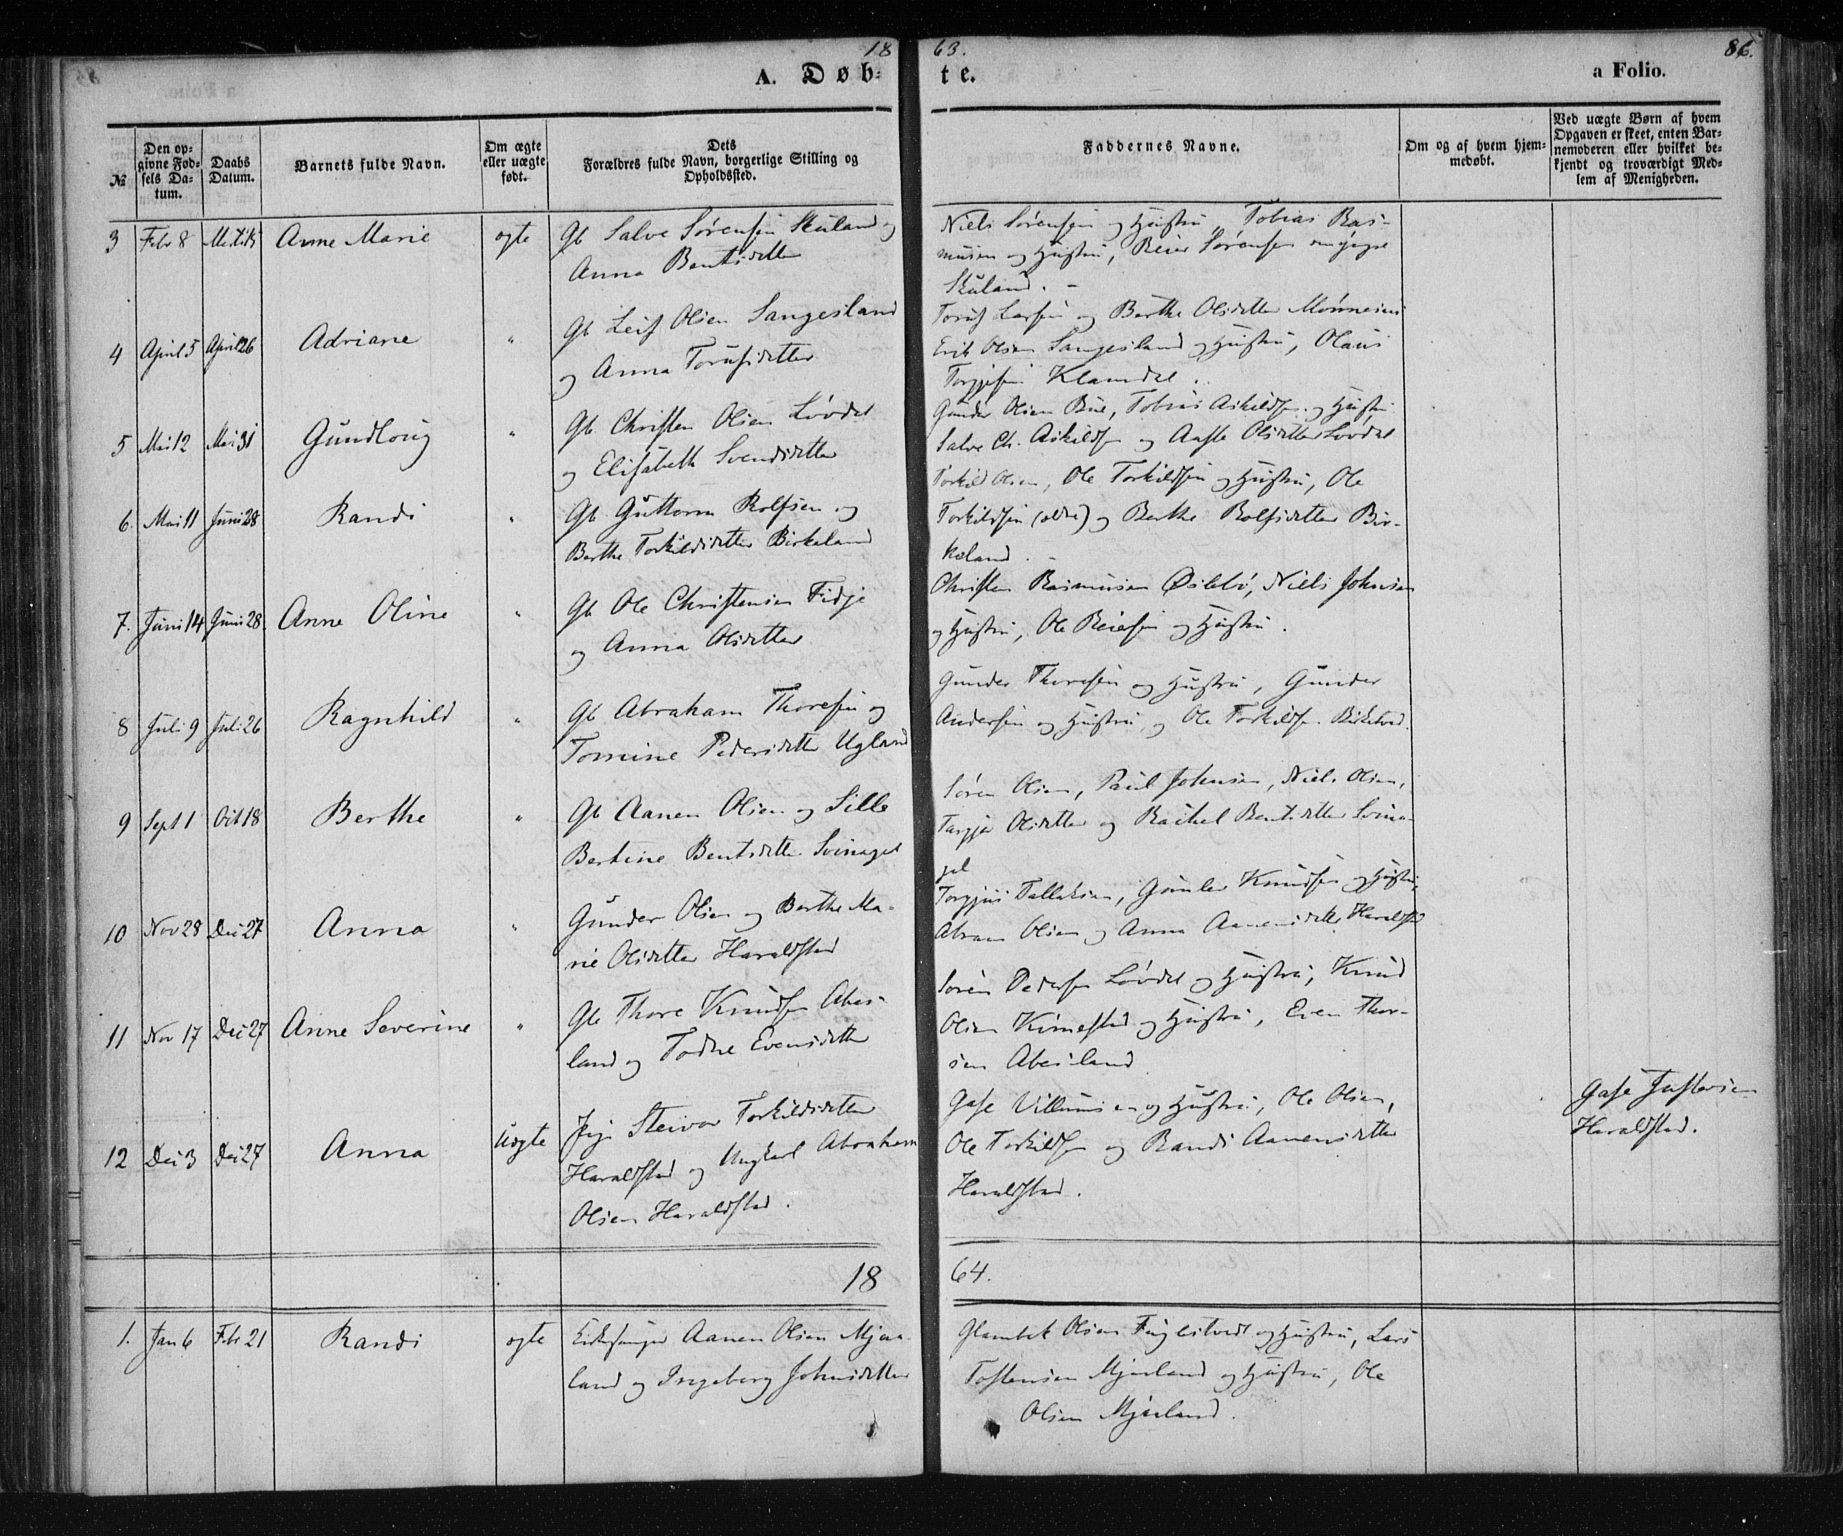 18 63.
86.
A. Døb- te.
a Folio.
№
Den op-
givne Fød-
sels Da-
tum.
Daabs
Datum.
Barnets fulde Navn.
Om ægte
eller uægte
født.
Dets
Forældres fulde Navn, borgerlige Stilling og
Opholdssted.
Faddernes Navne.
Om og af hvem hjem-
medøbt.
Ved uægte Børn af hvem
Opgaven er skeet, enten Bar-
nemoderen eller hvilket be-
kjendt og troværdigt Med-
lem af Menigheden.
3 Febr 8 Anne Marie ægte Gb Salve Sørensen Skuland og
Anna Bentsdatter
Niels Sørensen og Hustru, Tobias Ras-
musen og Hustru, Reier Sørensen
Skuland.
4 April 5 April 26 Adriane " Gb Leif Olsen Sangesland
og Anna Torufsdatter
Toruf Larsen og Berthe Olsdatter Mønnesins
Erik Olsen Sangesland og Hustru, Olaus
Torgjesen Klamdal.
5 Mai 12 Mai 31 Gundloug " Gb Christen Olsen Løvdal
og Elisabeth Svendsdatter
Gunder Olsen Bue, Tobias Askildsen og Hustru
Salve Ch. Askildsen og Aaste Olsdatter Løvdal
6. Mai 11 Juni 28 Randi " Gb Guttorm Rolfsen og
Berthe Torkildsdatter Birkeland
Torkild Olsen, Ole Torkildsen og Hustru, Ole
Torkildsen (ældre) og Berthe Rolfsdatter Bir-
keland.
7. Juni 14 Juni 28. Anne Oline " Gb Ole Christensen Fidje
og Anna Olsdatter
Christen Rasmusen Øslebø, Niels Johnsen
og Hustru, Ole Reiersen og Hustru.
8 Juli 9 Juli 26 Ragnhild " Gb Abraham Thoresen og
Tomine Pedersdatter Ugland
Gunder Thoresen og Hustru, Gunder
Andersen og Hustru og Ole Torkilds. Birketved.
9 Sept 1 Oct 18 Berthe " Gb Aanen Olsen og Sille
Bertine Bentsdatter Svinagel
Søren Olsen, Paul Johnsen, Niels Olsen,
Targjer Olsdatter og Rachel Bentsdatter Svina-
gel
10 Nov 28 Dec 27 Anna " Gunder Olsen og Berthe Ma-
rie Olsdatter Haraldstad
Torgjus Tallaksen, Gunler Knudsen og Hustru,
Abram Olsen og Anna Aanensdatter Haraldstad
11 Nov 17 Dec 27 Anne Severine " Gb Thore Knudsen Abes-
land og Todne Evensdatter
Søren Pedersen Løvdal og Hustru, Knud
Olsen Kirnestad og Hustru, Even Thor-
sen Abesland
12 Dec 3 Dec 27 Anna Uægte Pige Steivor Torkildsdatter
Haraldstad og Ungkarl Abraham
Olsen Haraldstad.
Gase Villumsen og Hustru, Ole Olsen,
Ole Torkildsen og Randi Aanensdatter
Haraldstad.
Gase Justersen
Haraldstad.
18 64.
1. Jan 6 Febr 21 Randi ægte Kirkesanger Aanen Olsen Mjaa-
land og Ingeborg Johnsdatter
Glambek Olsen Fuglestvedt og Hustru, Lars
Tostensen Mjaaland og Hustru, Ole
Olsen Mjaaland.